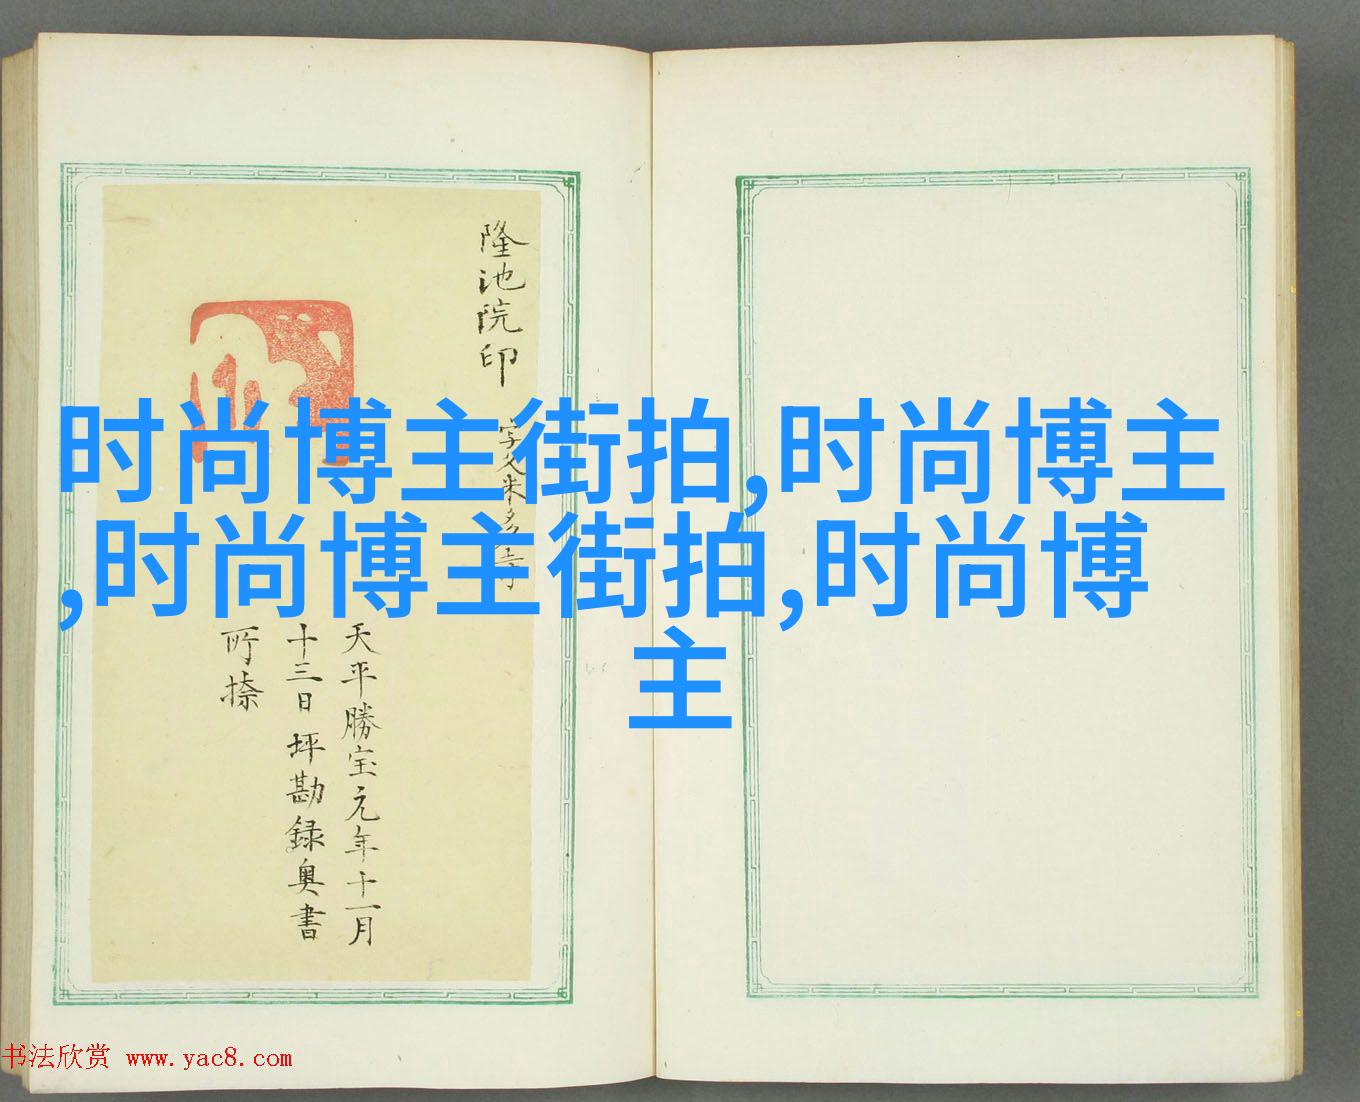 隆池院印
字久米多寺
天平勝宝元年十一月
十三日坪勘録奥書
所捺
时尚博主街拍,时尚博主
,时尚博主街拍,时尚博
主
书法欣赏 www.yac8.com